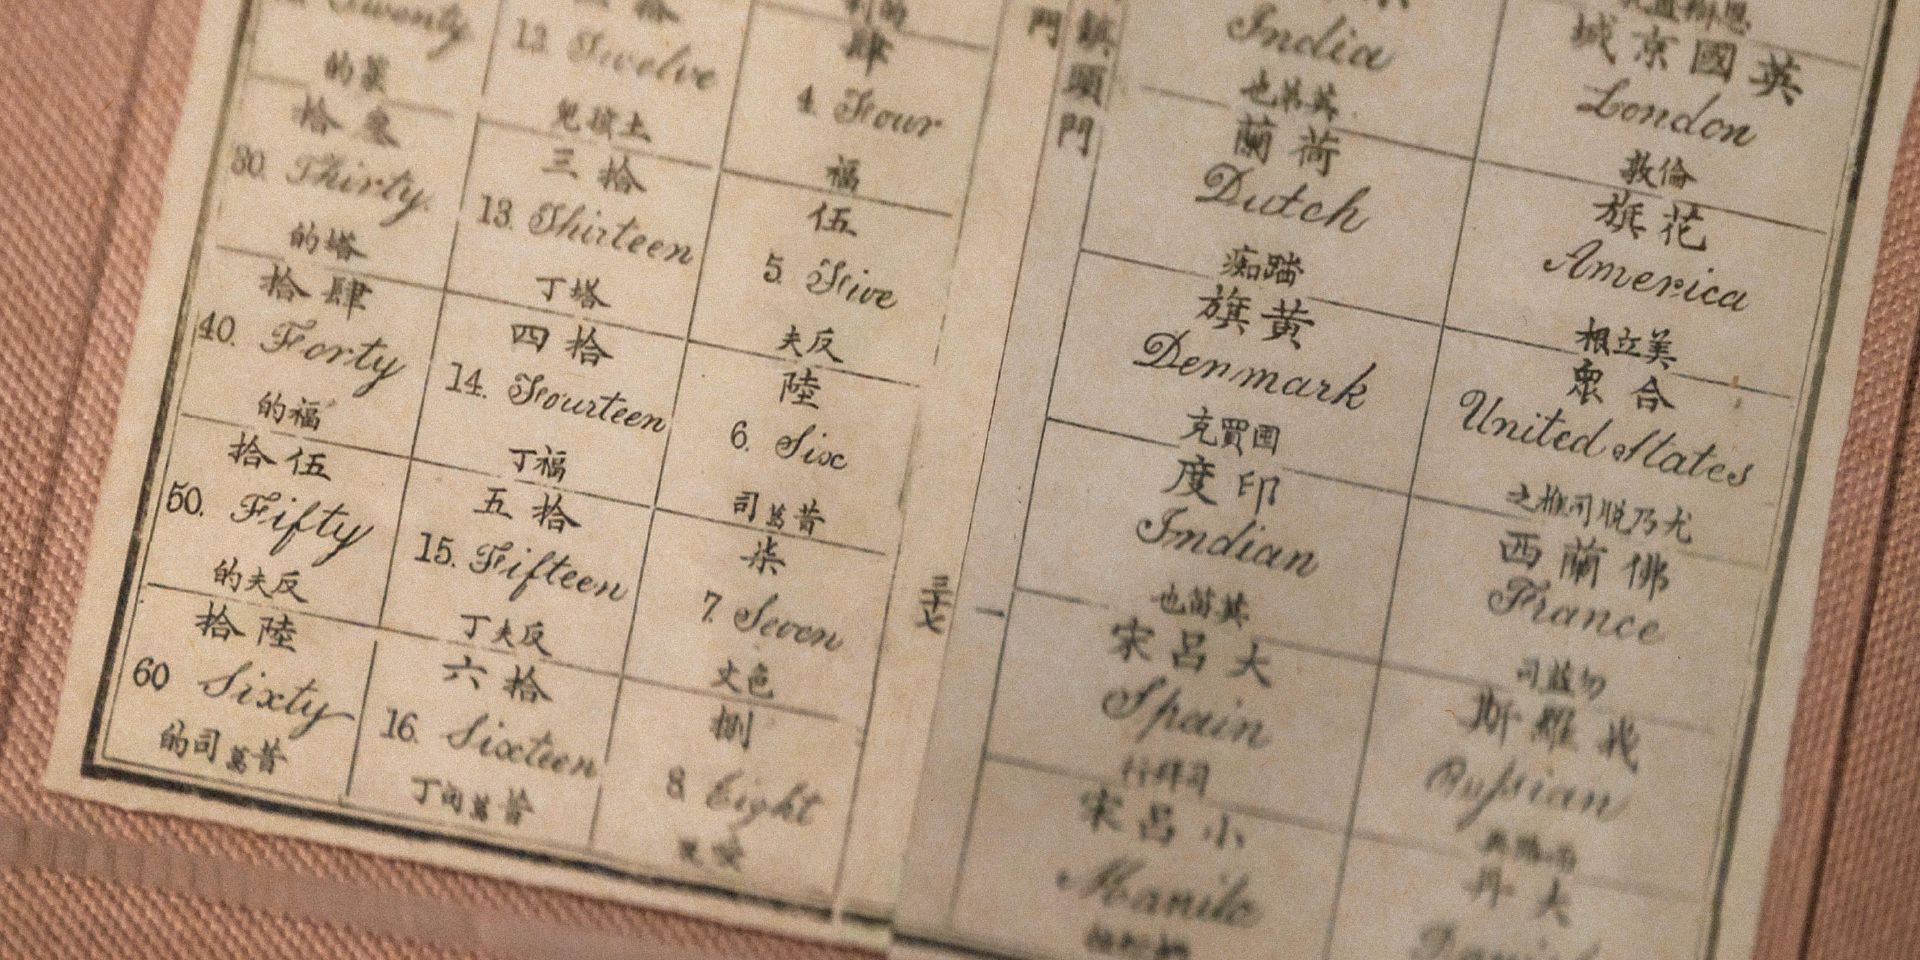 英國京城
London
倫敦
花旗
America
美立根
合衆
United States
尤乃脱司推之
佛蘭西
France
俄羅斯
Russian
大丹
鎮頭門
India
英弟也
荷蘭
Dutch
踏痴
黃旗
Denmark
買克
印度
Indian
英笛也
大呂宋
Spain
小呂宋
Manila
門
三十七
一
肆
4. Four
福
伍
5. Five
反夫
陸
6. Six
昔葛司
柒
7. Seven
色文
捌
8. Eight
拾
12. Twelve
土扳兒
拾三
13. Thirteen
塔丁
拾四
14. Fourteen
福丁
拾五
15. Fifteen
反夫丁
拾六
16. Sixteen
昔葛司丁
Twenty
的
叁拾
30. Thirty
塔的
肆拾
40. Forty
福的
伍拾
50. Fifty
反夫的
陸拾
60 Sixty
昔葛司的